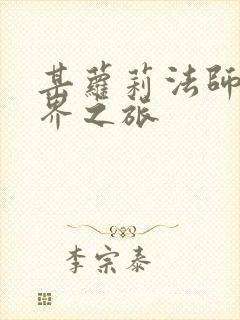 某蘿莉法師
界之旅
李宗泰